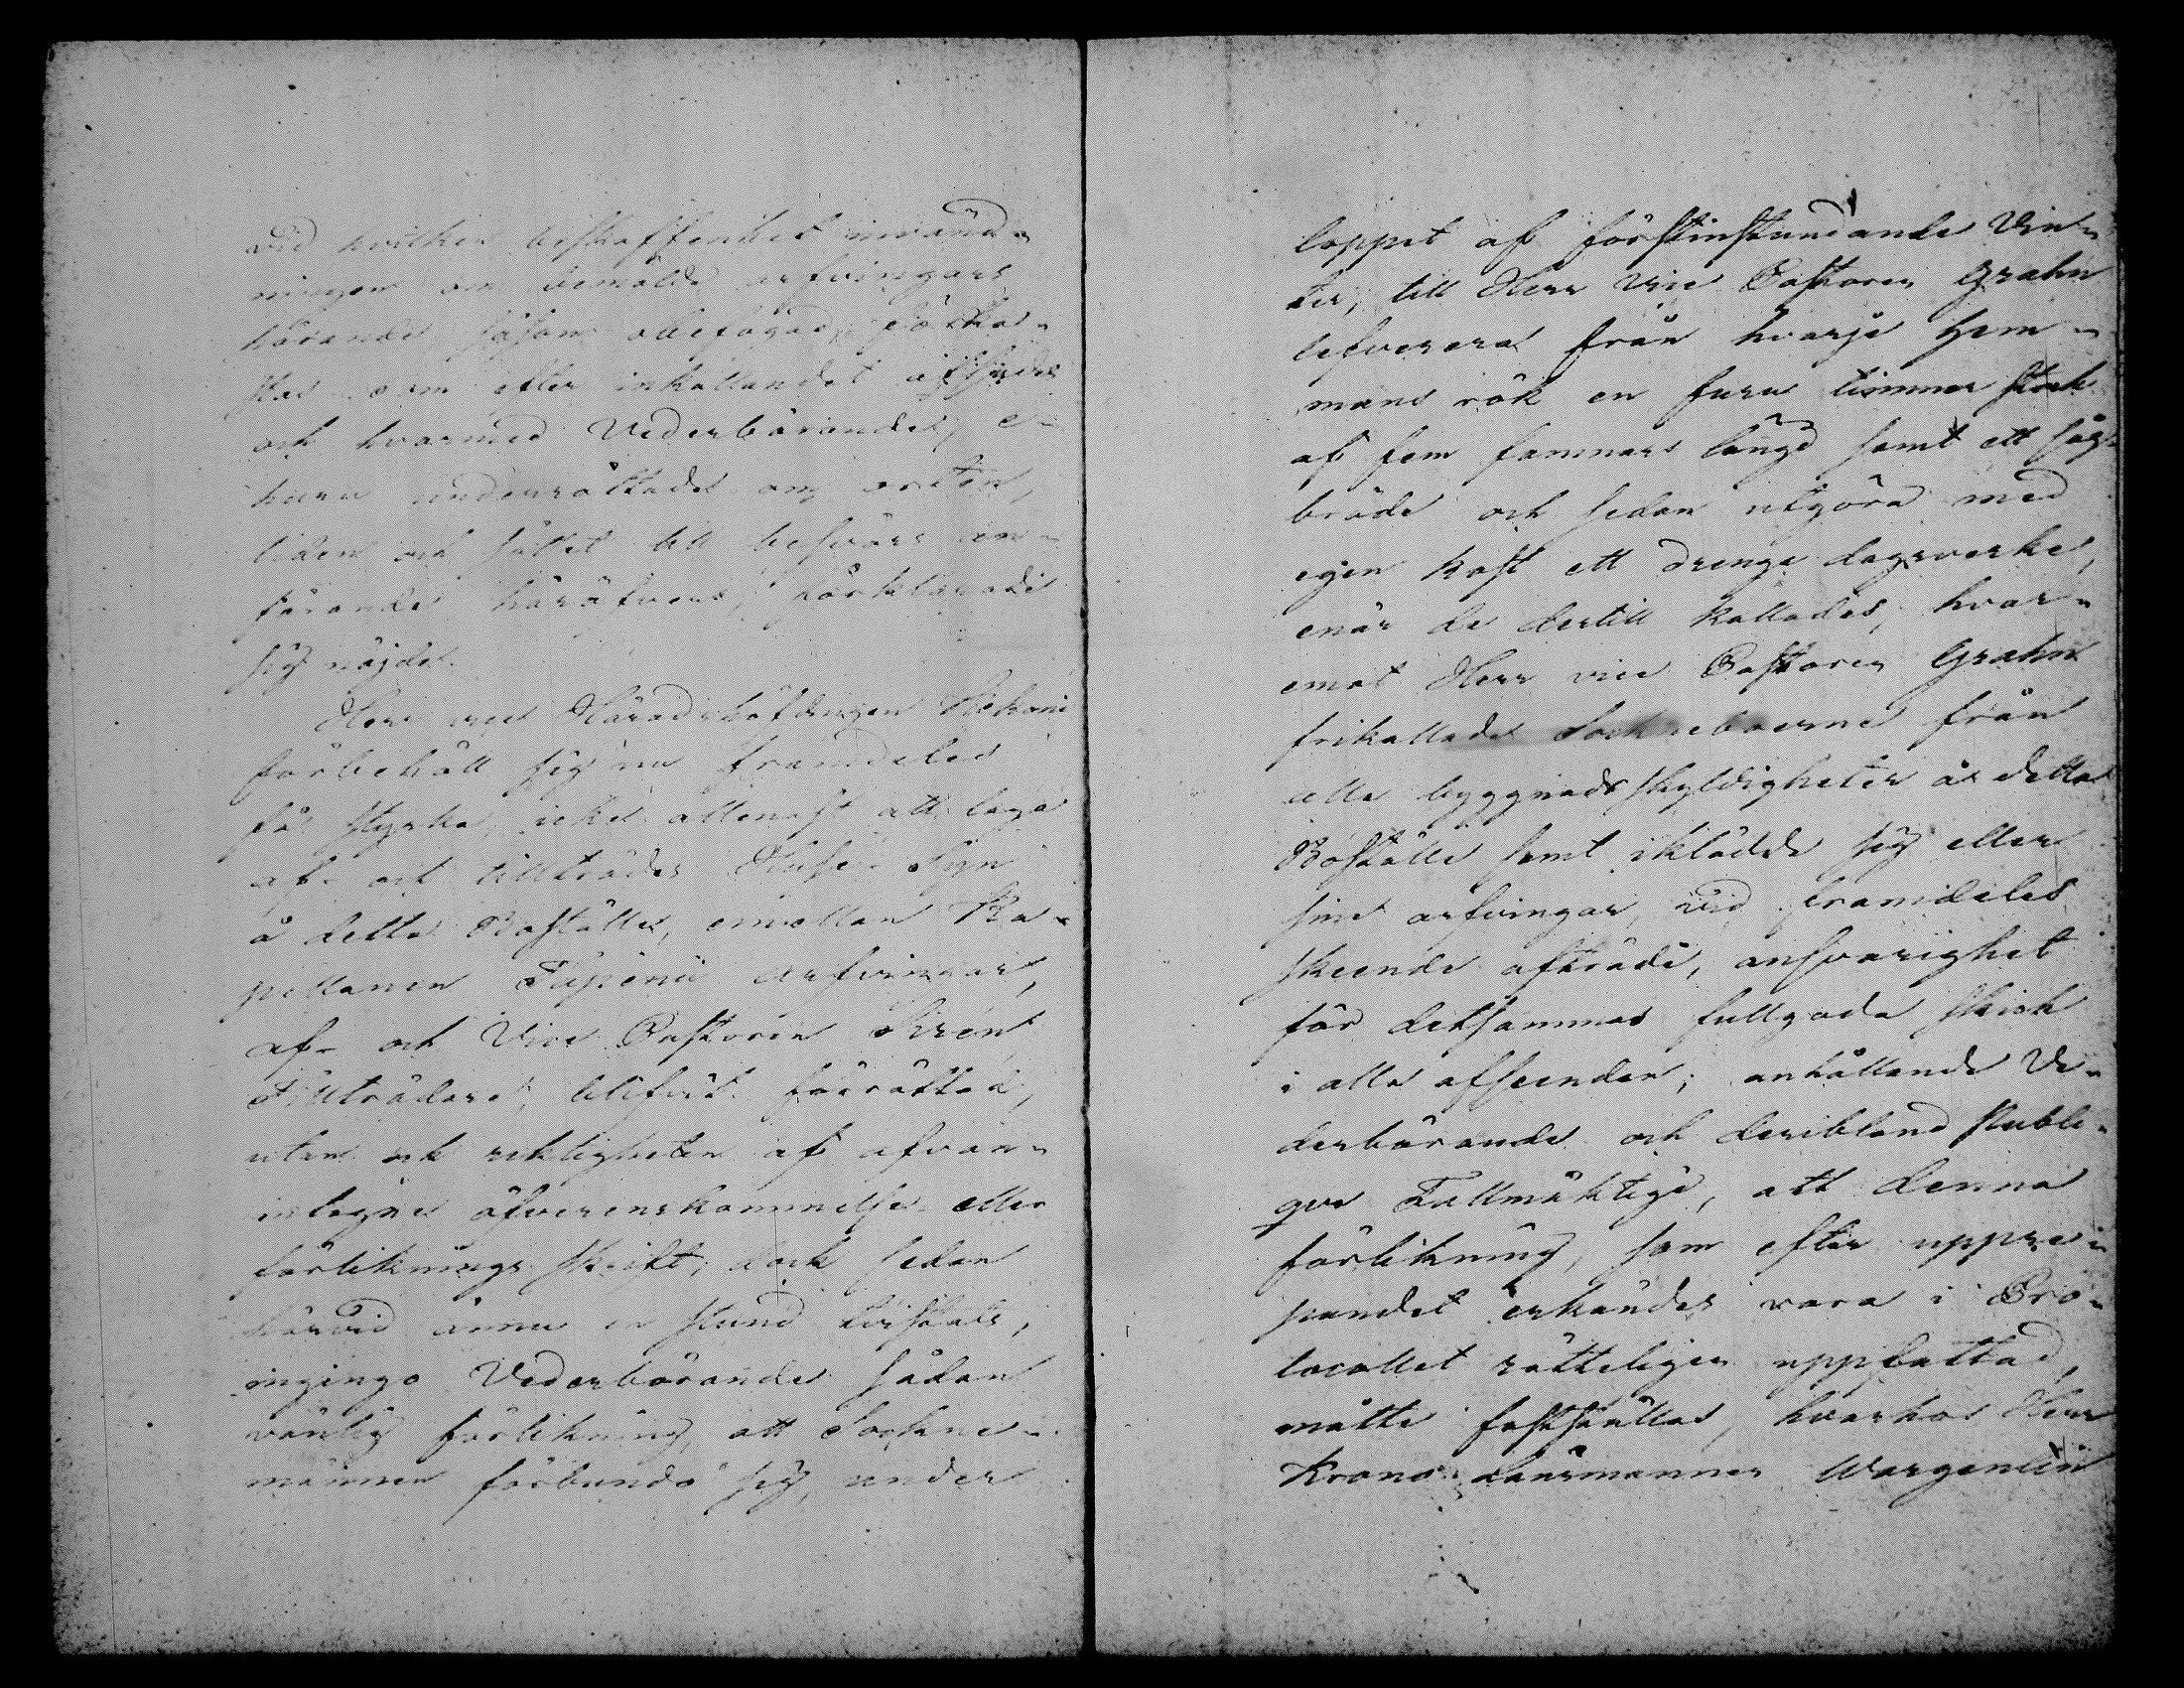 vid hvilken beskaffenhet invänd-
ningen om bemälde arfvingars
hörande, såsom obefogad, förka-
stas som efter inkallandet afsades
och hvarmed Vederbörande, e-
huru underrättade om orten,
tiden och sättet till besvärs an-
förande häröfver, förklarade
sig nöjde.
Herr vice Häradshöfdingen
förbehöll sig nu framdeles
få styrka, icke allenast att laga
af- och tillträdes Huse Syn
å detta Boställe, emellan Ka-
pellanen arfvingar,
af- och Vice Pastoren Sirén
Tillträdare, blifvit förrättad,
utan ock riktigheten af ofvan-
intagne öfverenskommelse eller
förliknings skrift; dock sedan
härvid ännu en stund tvistats,
ingingo Vederbörande sådan
vänlig förlikning, att Sockne-
männen förbundo sig, under
loppet af förstinstundande Vin-
ter, till Herr Vice Pastoren Grahn
lefverera från hvarje Hem-
mans rök en furu timmer stock
af fem famnars längd samt ett såg-
bräde och sedan utgöra med
egen kost ett drengs dagsverke,
enär de dertill kallades, hvar-
emot Herr vice Pastoren Grahn
frikallade Sockneboerne från
alla byggnads skyldigheter å detta
Boställe samt iklädde sig eller
sine arfvingar, vid framdeles
skeende afträde, ansvarighet
för detsammas fullgoda skick
i alla afseenden; anhållande Ve-
derbörande och deribland Publi-
qve Fullmäktige, att denna
förlikning, som efter uppre-
pandet erkändes vara i Pro-
tocollet rätteligen uppfattad,
måtte fastställas, hvarhos Herr
Krono Länsmannen Wargentin